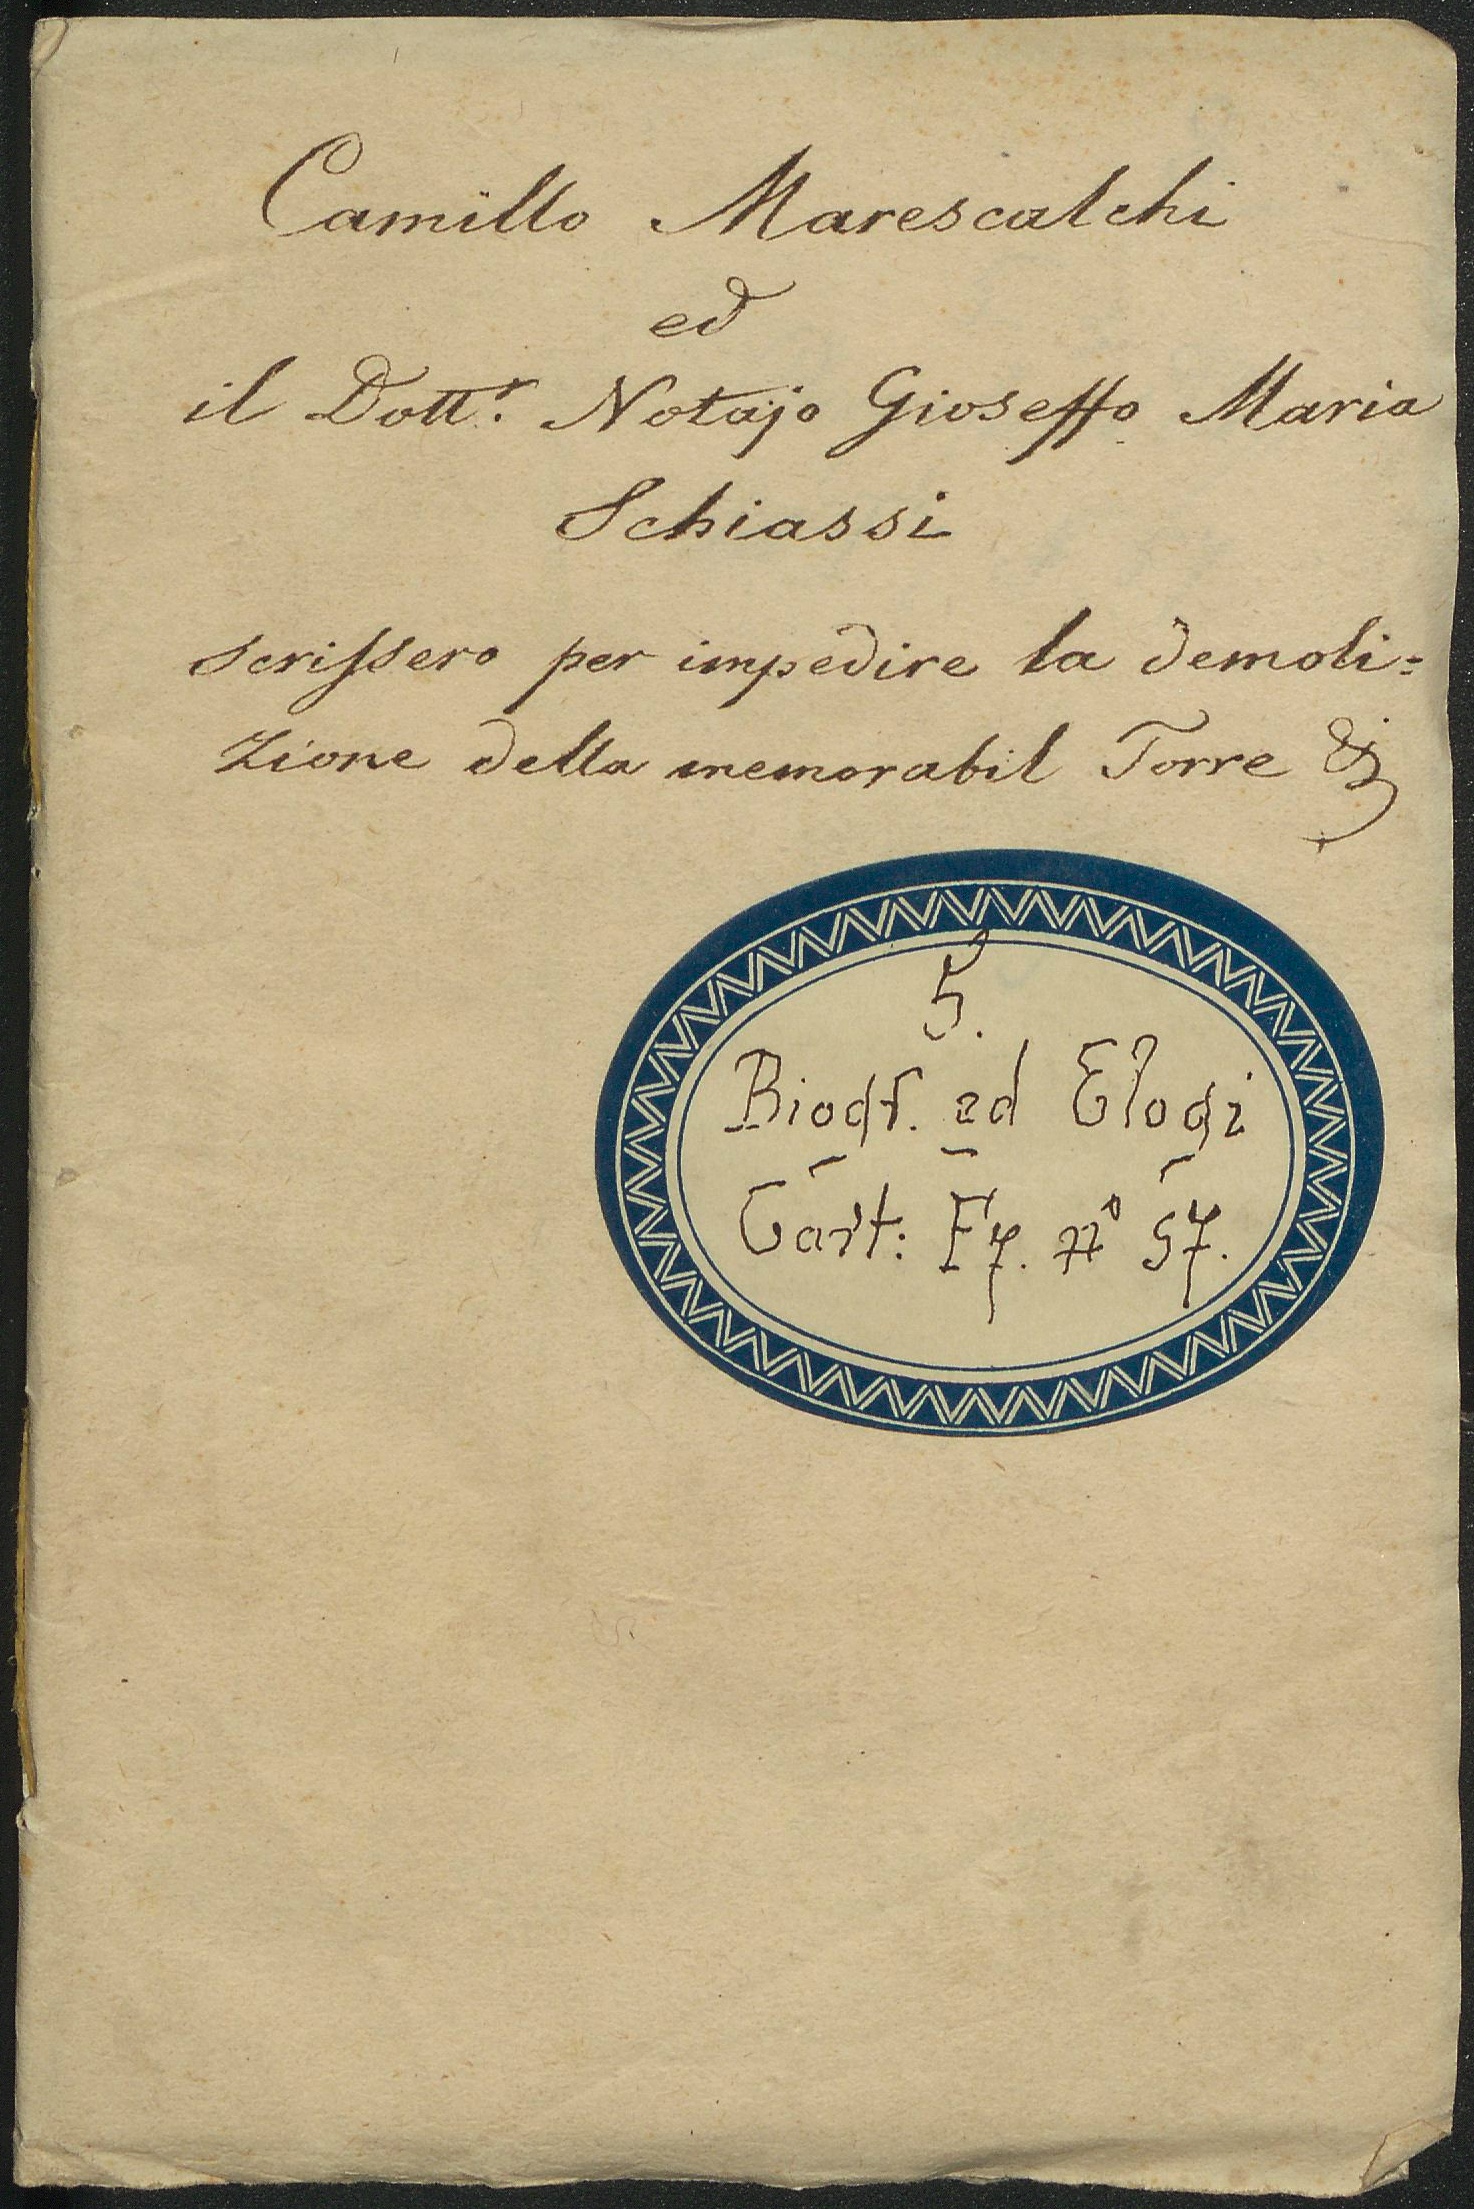 Camillo Marescalchi
ed
il Dott.r Notajo Gioseffo Maria
Schiassi
scrissero per impedire la demoli=
zione della memorabil Torre &
5.
Biogr. ed Elogi
Cart: F7. nº 57.